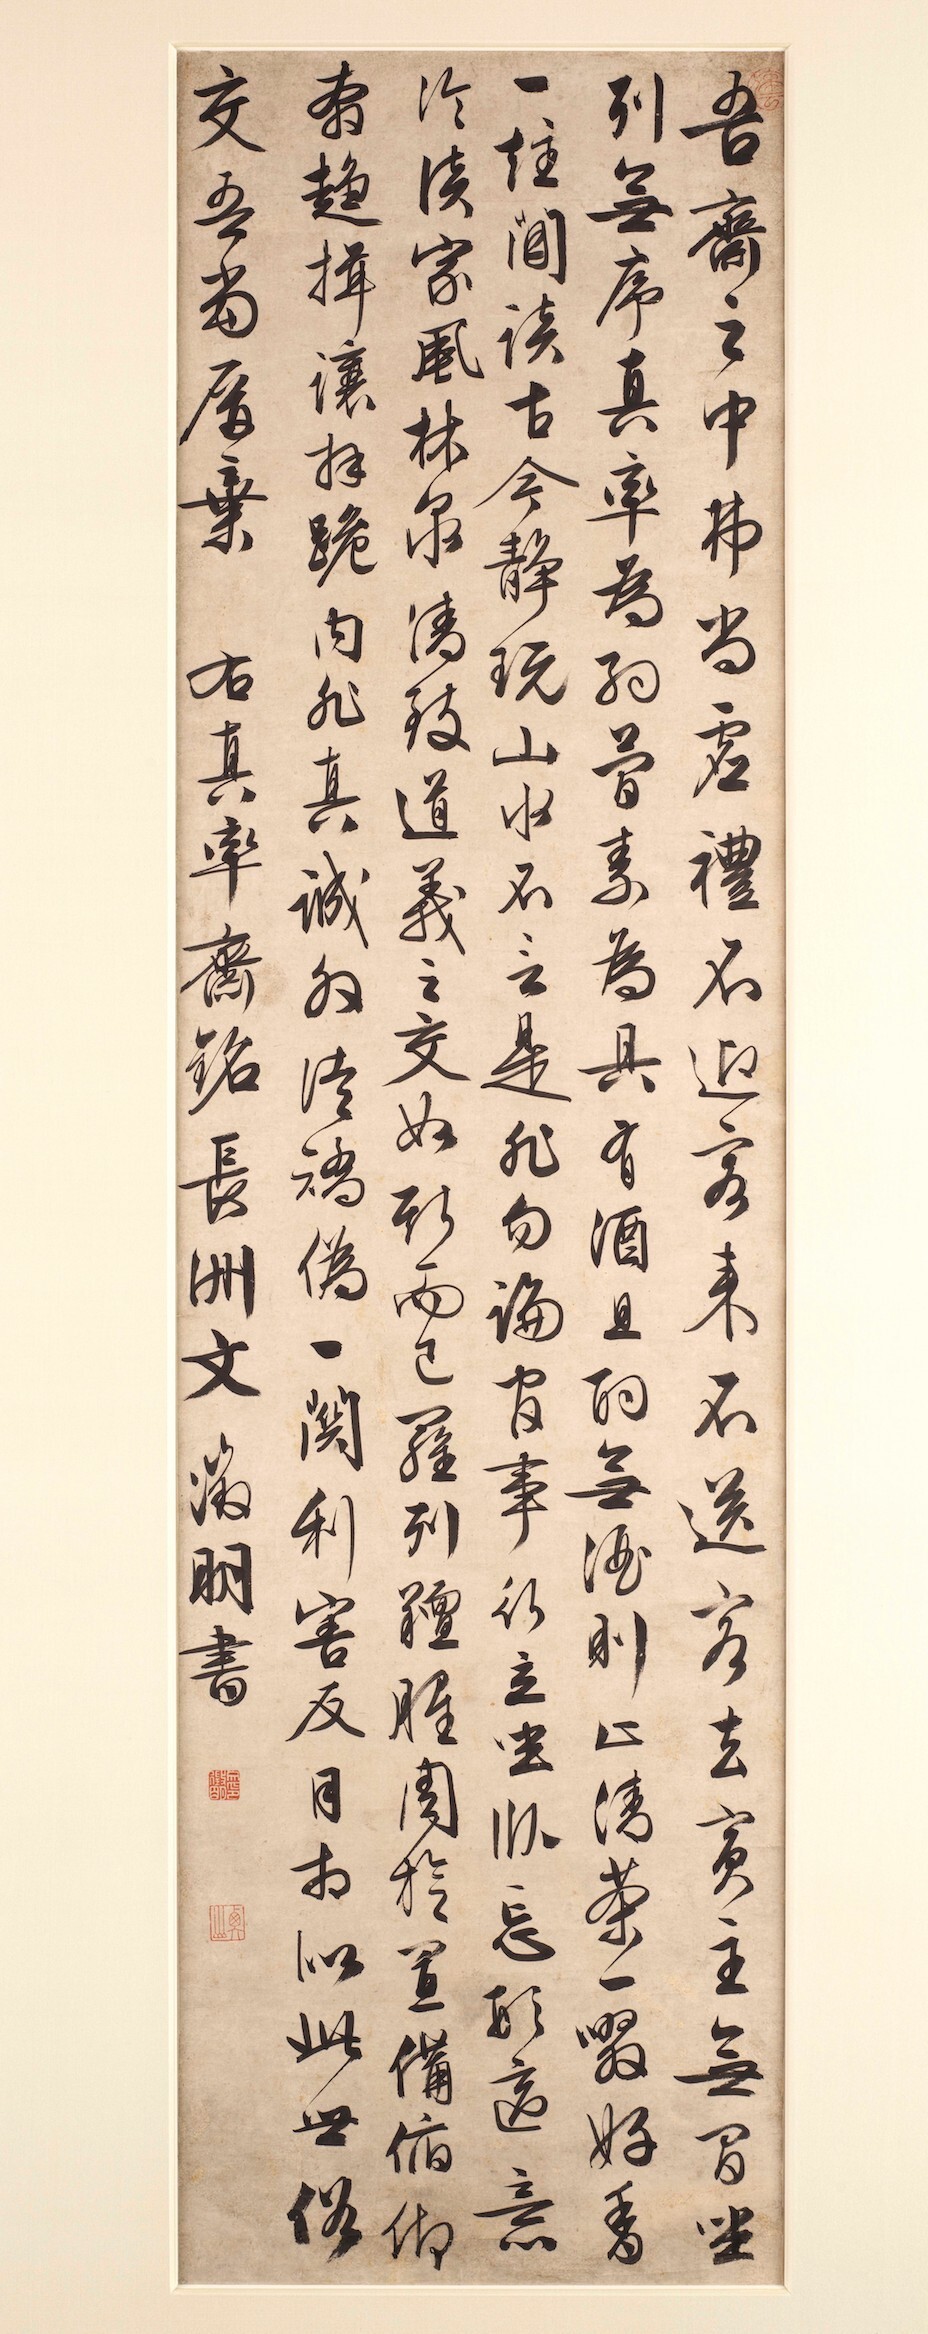 吾齋之中弗尚虛禮不迎客來不送客去賓主無間坐
列無序真率為約簡素為具有酒且酌無酒則止清茶一啜好香
一炷閒談古今靜玩山水不言是非勿論官事行立坐臥忘形適意
冷淡家風林泉清致道義之交如斯而已羅列羶腥周旋置備俯仰
奔趨揖讓拜跪內非真誠外徒矯偽一關利害反目相似此世俗
交吾當屏棄 右真率齋銘長洲文徵明書